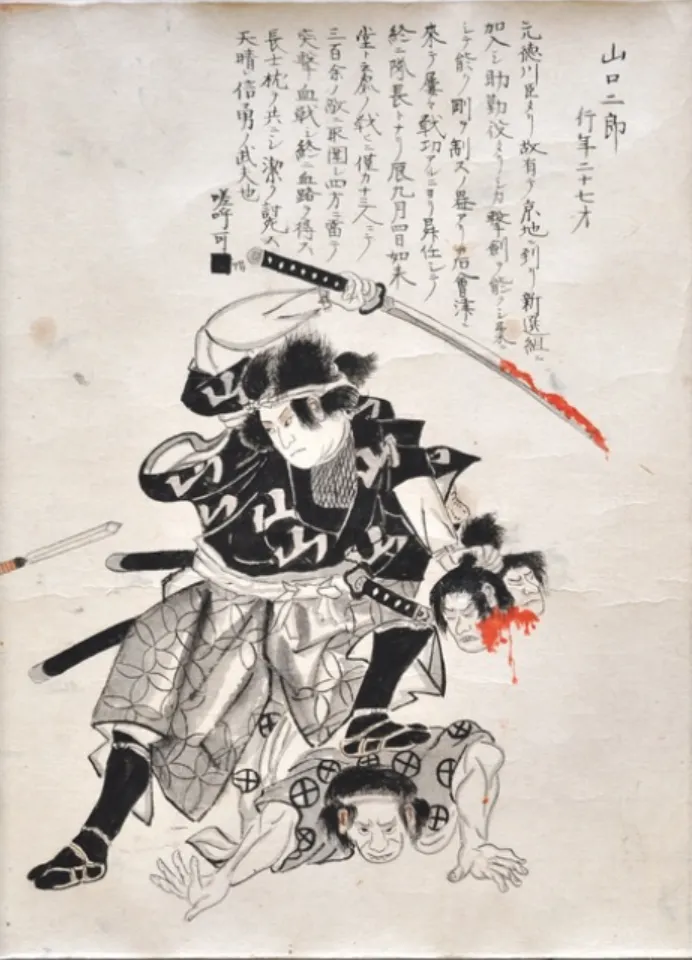 山口二郎
行年二十七才
元徳川臣タリ故有テ京地ニ到リ新選組ニ
加入シ助勤役タリシカ撃剣ヲ能クシ柔ニ
シテ能ク剛ヲ制スノ器アリカ后會津ニ
來テ屢々戦功アルニヨリ昇任シテ
終ニ隊長トナリ辰九月四日如来
堂ト云處ノ戦ニ僅カ十三人ニテ
三百余ノ敵ニ取圍レ四方ニ當テ
突撃血戦シ終ニ血路ヲ得ス
長士枕ヲ共ニシ潔ク討死ス
天晴レ信勇ノ武夫也
嗟吁可